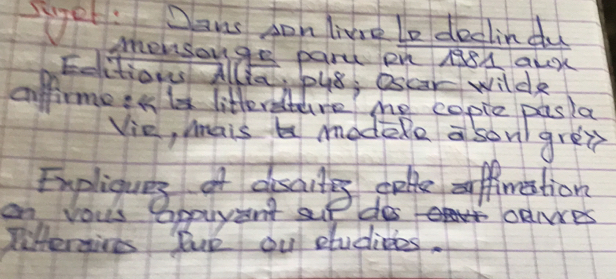 Sujet : Dans son livre le declin du
mensonge paru en 1981 aux
Editions Allia, p48; Oscar wilde
affirme : « la litterature ne copie pas la
Vie, mais la modèle a son gré »
Expliquez et discutez cette affirmation
en vous appuyant sur des œuvres
litteraires lue ou etudiées.